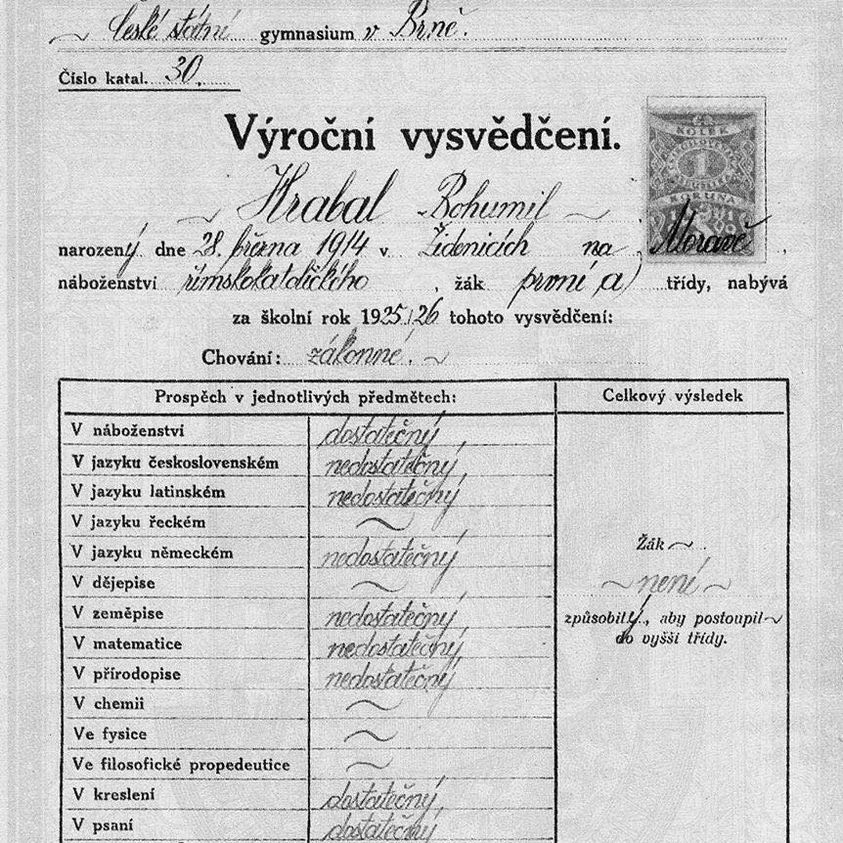 České státní gymnasium v Brně.
Číslo katal. 30.
Výroční vysvědčení.
Hrabal Bohumil
narozený dne 28. března 1914 v Židenicích na Moravě,
náboženství římskokatolického, žák první a) třídy, nabývá
za školní rok 1925/26 tohoto vysvědčení:
Chování: zákonné.
Prospěch v jednotlivých předmětech:
Celkový výsledek
V náboženství dostatečný,
V jazyku československém nedostatečný,
V jazyku latinském nedostatečný
V jazyku řeckém
V jazyku německém nedostatečný
V dějepise
V zeměpise nedostatečný,
V matematice nedostatečný,
V přírodopise nedostatečný
V chemii
Ve fysice
Ve filosofické propedeutice
V kreslení dostatečný,
V psaní dostatečný
Žák
není
způsobilý, aby postoupil
do vyšší třídy.
KOLEK
1
KORUNA